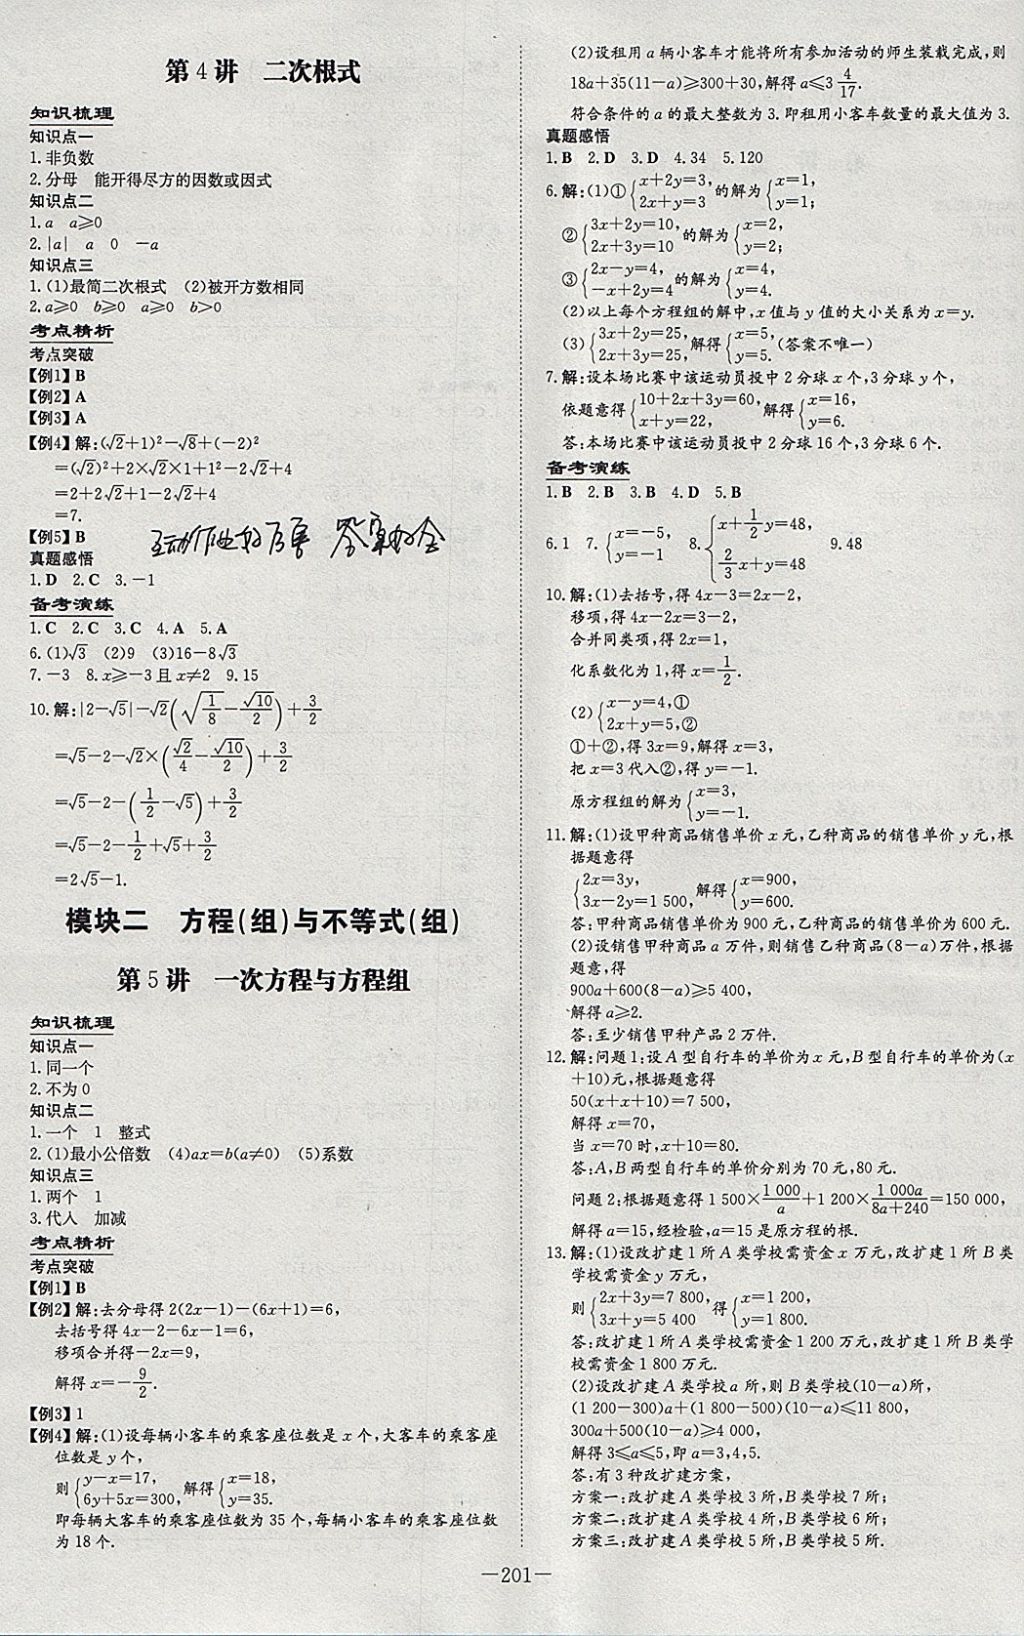 第4讲 二次根式
知识梳理
知识点一
1.非负数
2.分母 能开得尽方的因数或因式
知识点二
1.a a≥0
2.|a| a 0 -a
知识点三
1.(1)最简二次根式 (2)被开方数相同
2.a≥0 b≥0 a≥0 b>0
考点精析
考点突破
【例1】B
【例2】A
【例3】A
【例4】解:(√2+1)²-√8+(-2)²
=(√2)²+2×√2×1+1²-2√2+4
=2+2√2+1-2√2+4
=7.
【例5】B
真题感悟
1.D 2.C 3.-1
备考演练
1.C 2.C 3.C 4.A 5.A
6.(1)√3 (2)9 (3)16-8√3
7.-3 8.x≥-3且x≠2 9.15
10.解:|2-√5|-√2(√(1/8)-√10/2)+3/2
=√5-2-√2×(√2/4-√10/2)+3/2
=√5-2-(1/2-√5)+3/2
=√5-2-1/2+√5+3/2
=2√5-1.
模块二 方程(组)与不等式(组)
第5讲 一次方程与方程组
知识梳理
知识点一
1.同一个
2.不为0
知识点二
1.一个 1 整式
2.(1)最小公倍数 (4)ax=b(a≠0) (5)系数
知识点三
1.两个 1
3.代入 加减
考点精析
考点突破
【例1】B
【例2】解:去分母得2(2x-1)-(6x+1)=6,
去括号得4x-2-6x-1=6,
移项合并得-2x=9,
解得x=-9/2.
【例3】1
【例4】解:(1)设每辆小客车的乘客座位数是x个,大客车的乘客座
位数是y个,
则{y-x=17, 6y+5x=300, 解得{x=18, y=35.
即每辆大客车的乘客座位数为35个,每辆小客车的乘客座位数
为18个.
(2)设租用a辆小客车才能将所有参加活动的师生装载完成,则
18a+35(11-a)≥300+30,解得a≤3 4/17.
符合条件的a的最大整数为3.即租用小客车数量的最大值为3.
真题感悟
1.B 2.D 3.D 4.34 5.120
6.解:(1)①{x+2y=3, 2x+y=3 的解为{x=1, y=1;
②{3x+2y=10, 2x+3y=10 的解为{x=2, y=2;
③{2x-y=4, -x+2y=4 的解为{x=4, y=4.
(2)以上每个方程组的解中,x值与y值的大小关系为x=y.
(3){3x+2y=25, 2x+3y=25, 解得{x=5, y=5.(答案不唯一)
7.解:设本场比赛中该运动员投中2分球x个,3分球y个,
依题意得{10+2x+3y=60, x+y=22, 解得{x=16, y=6.
答:本场比赛中该运动员投中2分球16个,3分球6个.
备考演练
1.B 2.B 3.B 4.D 5.B
6.1 7.{x=-5, y=-1 8.{x+1/2y=48, 2/3x+y=48 9.48
10.解:(1)去括号,得4x-3=2x-2,
移项,得4x-2x=3-2,
合并同类项,得2x=1,
化系数化为1,得x=1/2.
(2){x-y=4,① 2x+y=5,②
①+②,得3x=9,解得x=3,
把x=3代入②,得y=-1.
原方程组的解为{x=3, y=-1.
11.解:(1)设甲种商品销售单价x元,乙种商品的销售单价y元,根
据题意得
{2x=3y, 3x-2y=1 500, 解得{x=900, y=600.
答:甲种商品销售单价为900元,乙种商品的销售单价为600元.
(2)设销售甲种商品a万件,则销售乙种商品(8-a)万件,根据
题意,得
900a+600(8-a)≥5 400,
解得a≥2.
答:至少销售甲种产品2万件.
12.解:问题1:设A型自行车的单价为x元,B型自行车的单价为(x
+10)元,根据题意得
50(x+x+10)=7 500,
解得x=70,
当x=70时,x+10=80.
答:A,B两型自行车的单价分别为70元,80元.
问题2:根据题意得1 500×1 000/a+1 200×1 000a/(8a+240)=150 000,
解得a=15,经检验,a=15是原方程的根.
13.解:(1)设改扩建1所A类学校需资金x万元,改扩建1所B类
学校需资金y万元,
则{2x+3y=7 800, 3x+y=5 400 得{x=1 200, y=1 800.
答:改扩建1所A类学校需资金1 200万元,改扩建1所B类学
校需资金1 800万元.
(2)设改扩建A类学校a所,则B类学校(10-a)所,
(1 200-300)a+(1 800-500)(10-a)≤11 800,
300a+500(10-a)≥4 000,
解得3≤a≤5,即a=3,4,5.
答:有3种改扩建方案,
方案一:改扩建A类学校3所,B类学校7所;
方案二:改扩建A类学校4所,B类学校6所;
方案三:改扩建A类学校5所,B类学校5所.
—201—